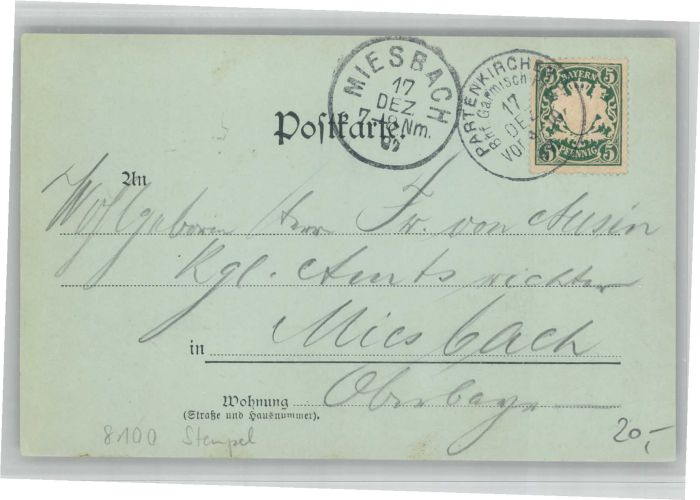 MIESBACH
17
DEZ.
7-8 Nm.
PARTENKIRCHEN
Bhf Garmisch
17
DEZ
Vor
5 BAYERN 5
5 PFENNIG 5
Postkarte.
An
Wohlgeboren Herrn Fr. von
Kgl. Amtsrichter
in Miesbach
Wohnung Oberbaye
(Straße und Hausnummer).
8100 Stempel
20,-